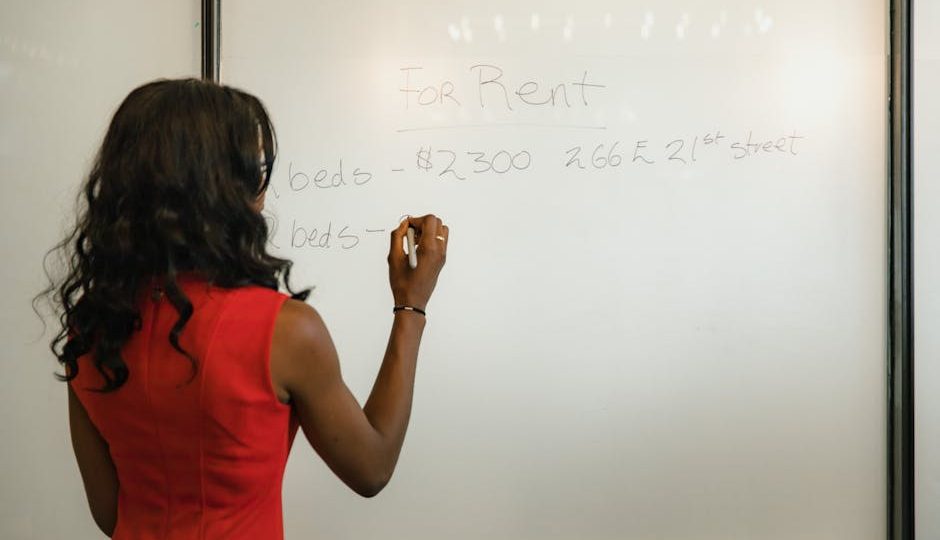 For Rent
2 beds - $2300 266 E 21st street
2 beds -